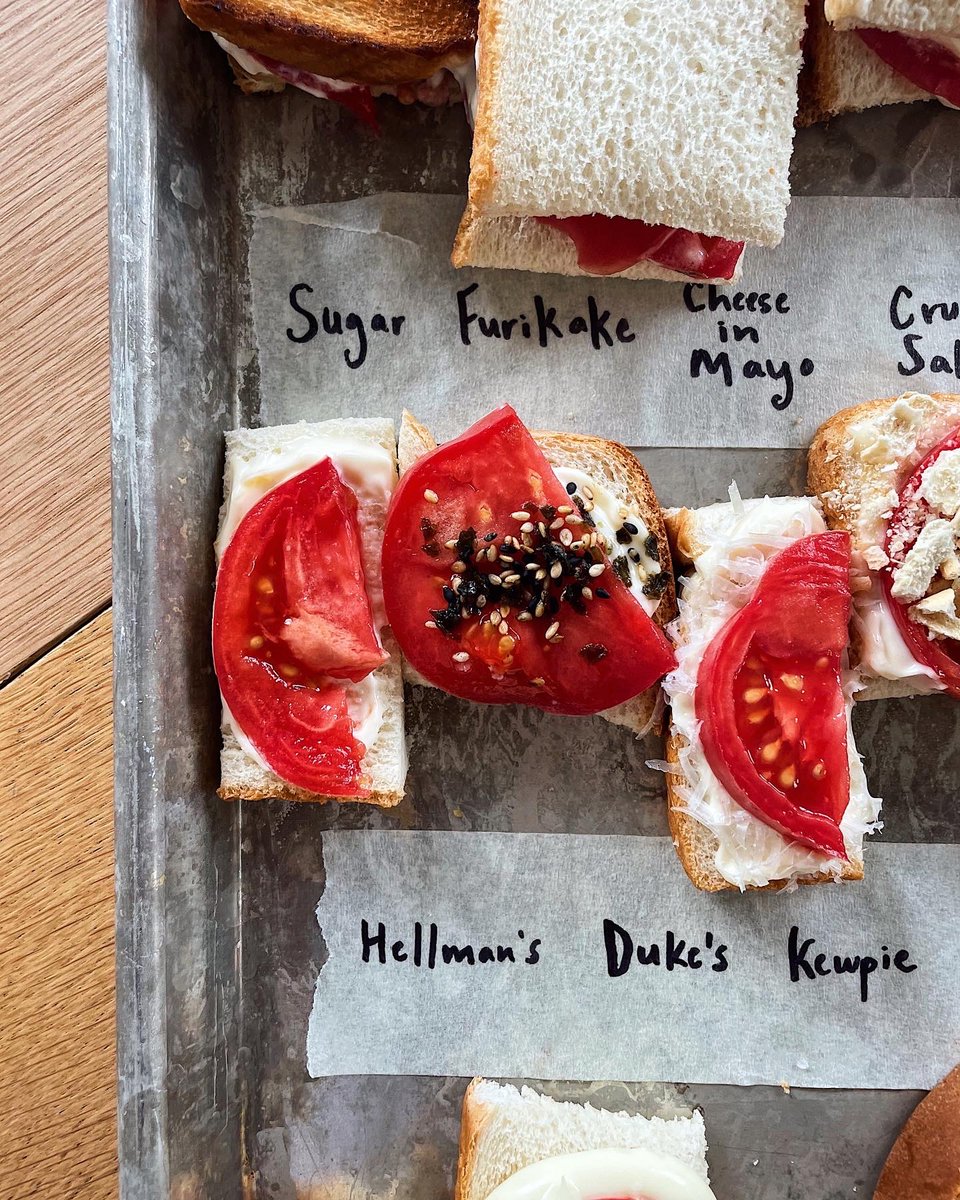 Sugar Furikake Cheese
in
Mayo
Hellman's Duke's Kewpie